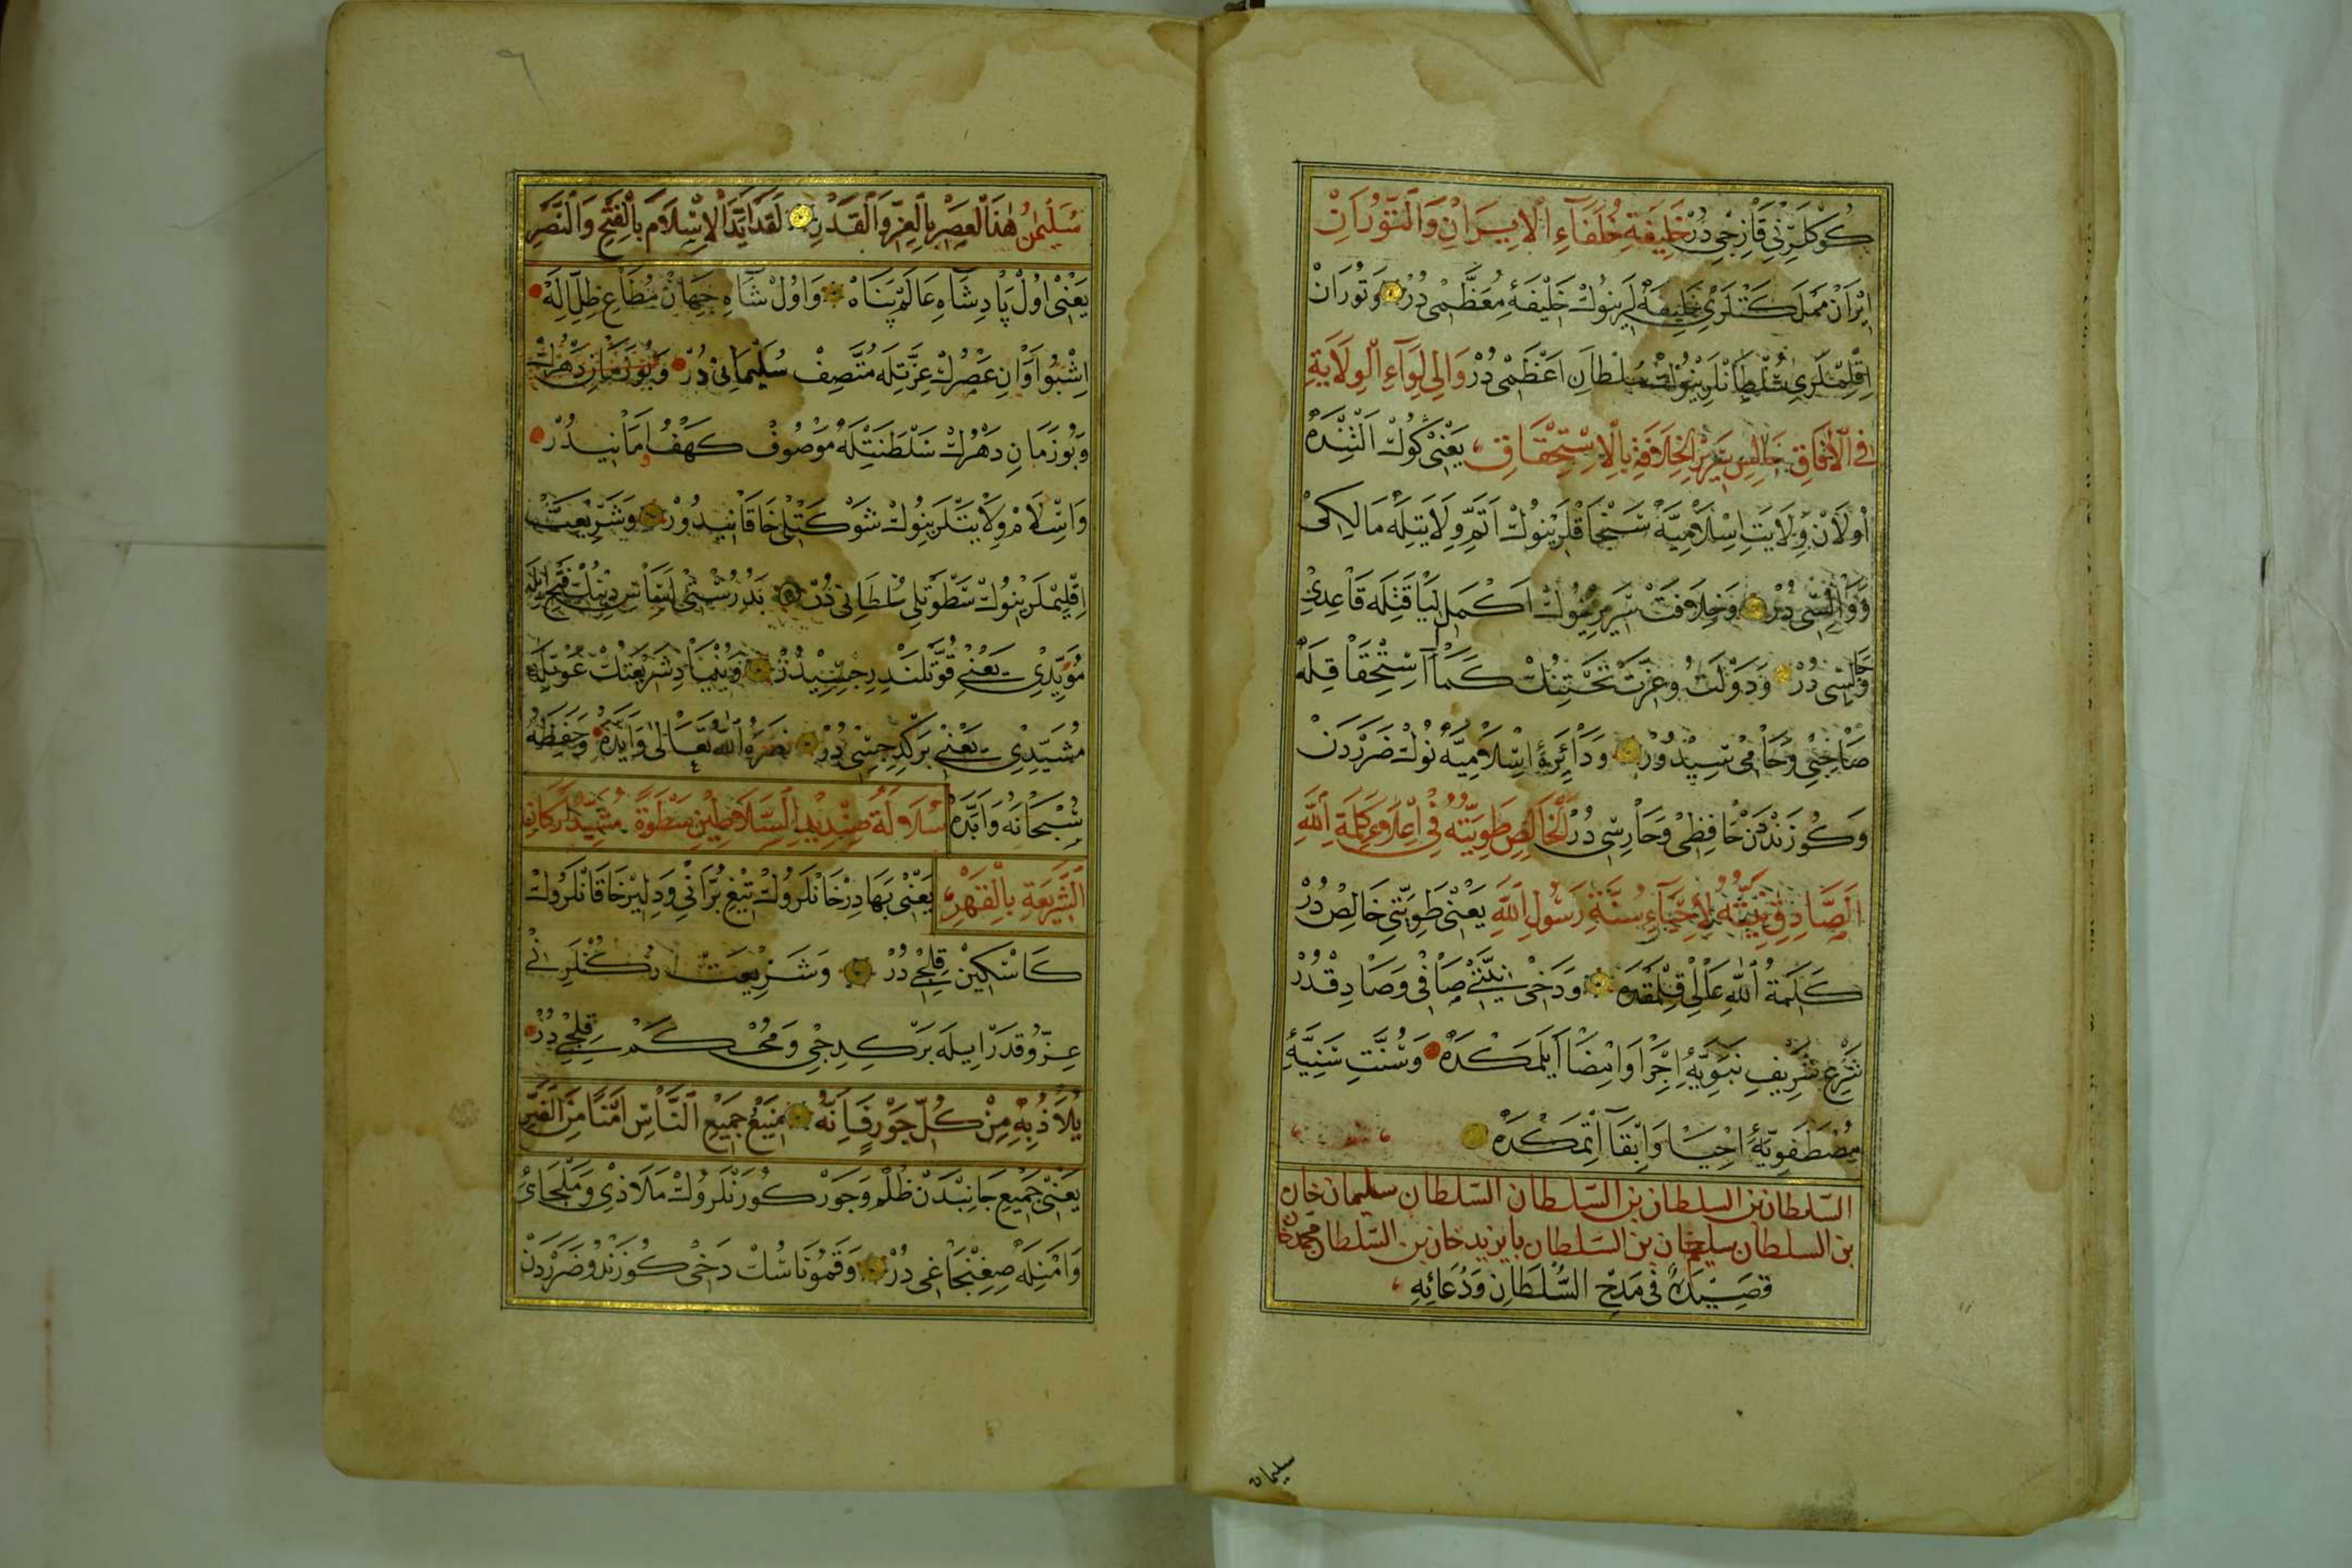 كُوكْلَرِنِي قَازِيجِي دُرْ خَلِيفَةِ خُلَفَآءِ الْاِيرَانِ وَالتُّورَانِ
اِيرَانْ مَمْلَكَتْلَرِي خَلِيفَه لَرِينُوكْ خَلِيفَهٔ مُعَظَّمِي دُرْ وَتُورَانْ
اِقْلِيمْلَرِي سُلْطَانْلَرِينُوكْ سُلْطَانِ اَعْظَمِي دُرْ وَالِي لِوَآءِ الْوِلَايَةِ
فِي الْآفَاقِ جَالِسِ سَرِيرِ الْخِلَافَةِ بِالْاِسْتِحْقَاقِ يَعْنِي كُوكْ اَلْتِنْدَه
اُولَانْ وِلَايَتِ اِسْلَامِيَّه سَنْجَاقْلَرِينُوكْ اَتَمِّ وِلَايَتِلَه مَالِكِي
وَوَالِيسِي دُرْ وَخِلَافَتْ سَرِيرِينُوكْ اَكْمَلِ لَيَاقَتِلَه قَاعِدِي
وَجَالِسِي دُرْ وَدَوْلَتْ وُ عِزَّتْ تَخْتِنُكْ كَمَا اسْتِحْقَاقِلَه
صَاحِبِي وَحَامِيسِيدُورْ وَدَائِرَهٔ اِسْلَامِيَّه نُوكْ ضَرَرْدَنْ
وَكُوزَنْدَنْ حَافِظِي وَحَارِسِي دُرْ الْخَالِصِ طَوِيَّتُهُ فِي اِعْلَاءِ كَلِمَةِ اللهِ
الصَّادِقِ نِيَّتُهُ لِاِحْيَآءِ سُنَّةِ رَسُولِ اللهِ يَعْنِي طَوِيَّتِي خَالِصْ دُرْ
كَلِمَةُ اللهِ عَالِي قِلْمَقْدَه وَدَخِي نِيَّتِي صَافِي وَصَادِقْدُرْ
شَرْعِ شَرِيفِ نَبَوِيَّهِ اِجْرَا وَاِمْضَا اَيْلَمَكْدَه وَسُنَّتِ سَنِيَّهٔ
مُصْطَفَوِيَّهٔ اِحْيَا وَاِبْقَا اِتْمَكْدَه
السلطان بن السلطان بن السلطان السلطان سليمان خان
بن السلطان سليم خان بن السلطان بايزيد خان بن السلطان محمد خان
قَصِيدَةٌ فِي مَدْحِ السُّلْطَانِ وَدُعَائِهِ
سليمان
سُلَيْمٰنُ هٰذَا الْعَصْرِ بِالْعِزِّ وَالْقَدْرِ لَقَدْ اَيَّدَ الْاِسْلَامَ بِالْفَتْحِ وَالنَّصْرِ
يَعْنِي اُولْ پَادِشَاهِ عَالَمْ پَنَاهْ وَاُولْ شَاهِ جِهَانْ مُطَاعِ ظِلِّ اِلٰهْ
اِشْبُو اَوَانِ عَصْرُكْ عِزَّتِلَه مُتَّصِفْ سُلَيْمَانِي دُرْ
وَبُو زَمَانِ دَهْرُكْ سَلْطَنَتِلَه مَوْصُوفْ كَهْفُ اَمَانِيدُرْ
وَاِسْلَامْ وِلَايَتْلَرِينُوكْ شَوْكَتْلِي خَاقَانِيدُورْ وَشَرِيعَتْ
اِقْلِيمْلَرِينُوكْ سَطْوَتْلِي سُلْطَانِي دُرْ
مُؤَيِّدِي يَعْنِي قُوَّتْلَنْدِرِجِيسِيدُرْ وَبُنْيَادِ شَرِيعَتُكْ عَوْنِلَه
مُشَيِّدِي يَعْنِي بَرْكِدِجِيسِي دُرْ نَصَرَهُ اللهُ تَعَالٰى وَاَيَّدَهُ وَحَفِظَهُ
سُبْحَانَهُ وَاَبَّدَهُ سُلَالَةُ صِنْدِيدِ السَّلَاطِينِ سَطْوَةً مُشَيِّدُ اَرْكَانِ
الشَّرِيعَةِ بِالْقَهْرِ يَعْنِي بَهَادِرْ خَانْلَرُوكْ تِيغِ بُرَّانِي وَدِلِيرْ خَاقَانْلَرُوكْ
كَاسْكِينْ قِلِجِي دُرْ وَشَرِيعَتْ رُكْنْلَرِينِي
عِزّ وُ قَدْرْ اِيلَه بَرْكِدِجِي وَمُحْكَمْ قِلِجِي دُرْ
يُلَاذُ بِهِ مِنْ كُلِّ جَوْرٍ فَاِنَّهُ مَنِيعُ جَمِيعِ النَّاسِ اَمْنًا مِنَ الضُّرِّ
يَعْنِي جَمِيعِ جَانِبْدَنْ ظُلْم وَجَوْر كُورَنْلَرُوكْ مَلَاذِي وَمَلْجَائِي
وَاَمْنِلَه صِغِنْجَاغِي دُرْ وَقَمُو نَاسُكْ دَخِي كُوزَنْد وُ ضَرَرْدَنْ